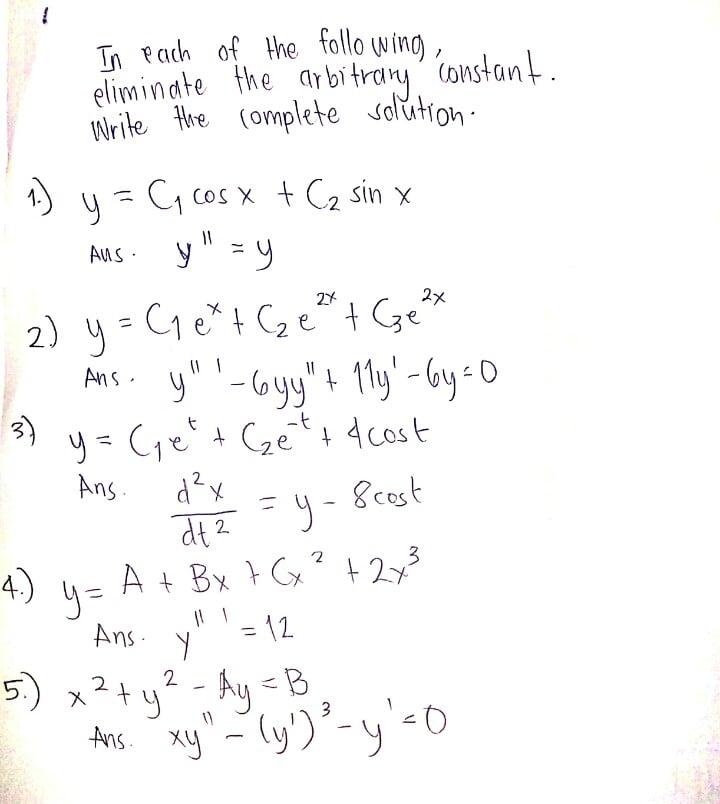 In each of the following,
eliminate the arbitrary constant.
Write the complete solution.
1.) y = C₁ cos x + C₂ sin x
Ans. y'' = y
2) y = C₁ eˣ + C₂ e²ˣ + C₃e²ˣ
Ans. y''' - 6yy'' + 11y' - 6y = 0
3) y = C₁eᵗ + C₂e⁻ᵗ + 4cost
Ans. d²x/dt² = y - 8cost
4.) y = A + Bx + Cx² + 2x³
Ans. y''' = 12
5.) x² + y² - Ay = B
Ans. xy'' - (y')³ - y' = 0